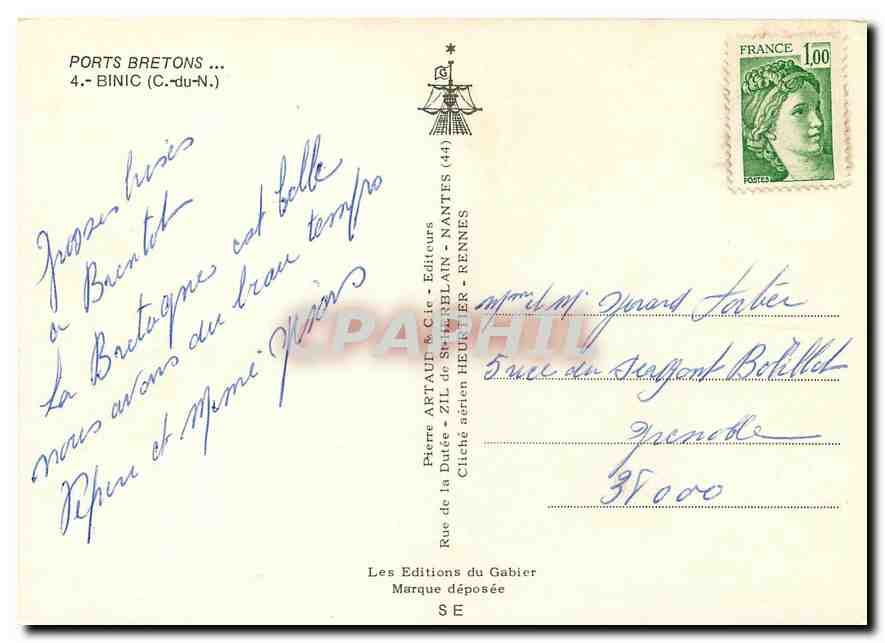 PORTS BRETONS ...
4.- BINIC (C.-du-N.)
Grosses bises
a Bientot
La Bretagne est belle
nous avons du beau temps
Pépere et Mémé
Pierre ARTAUD & Cie - Editeurs
Rue de la Dutée - ZIL de St-HERBLAIN - NANTES (44)
Cliché aérien HEURTIER - RENNES
G
FRANCE 1,00
POSTES
Mme et Mr Gerard
5 rue du Sergent Bobillot
Grenoble
38000
CPAPHIL
Les Editions du Gabier
Marque déposée
S E